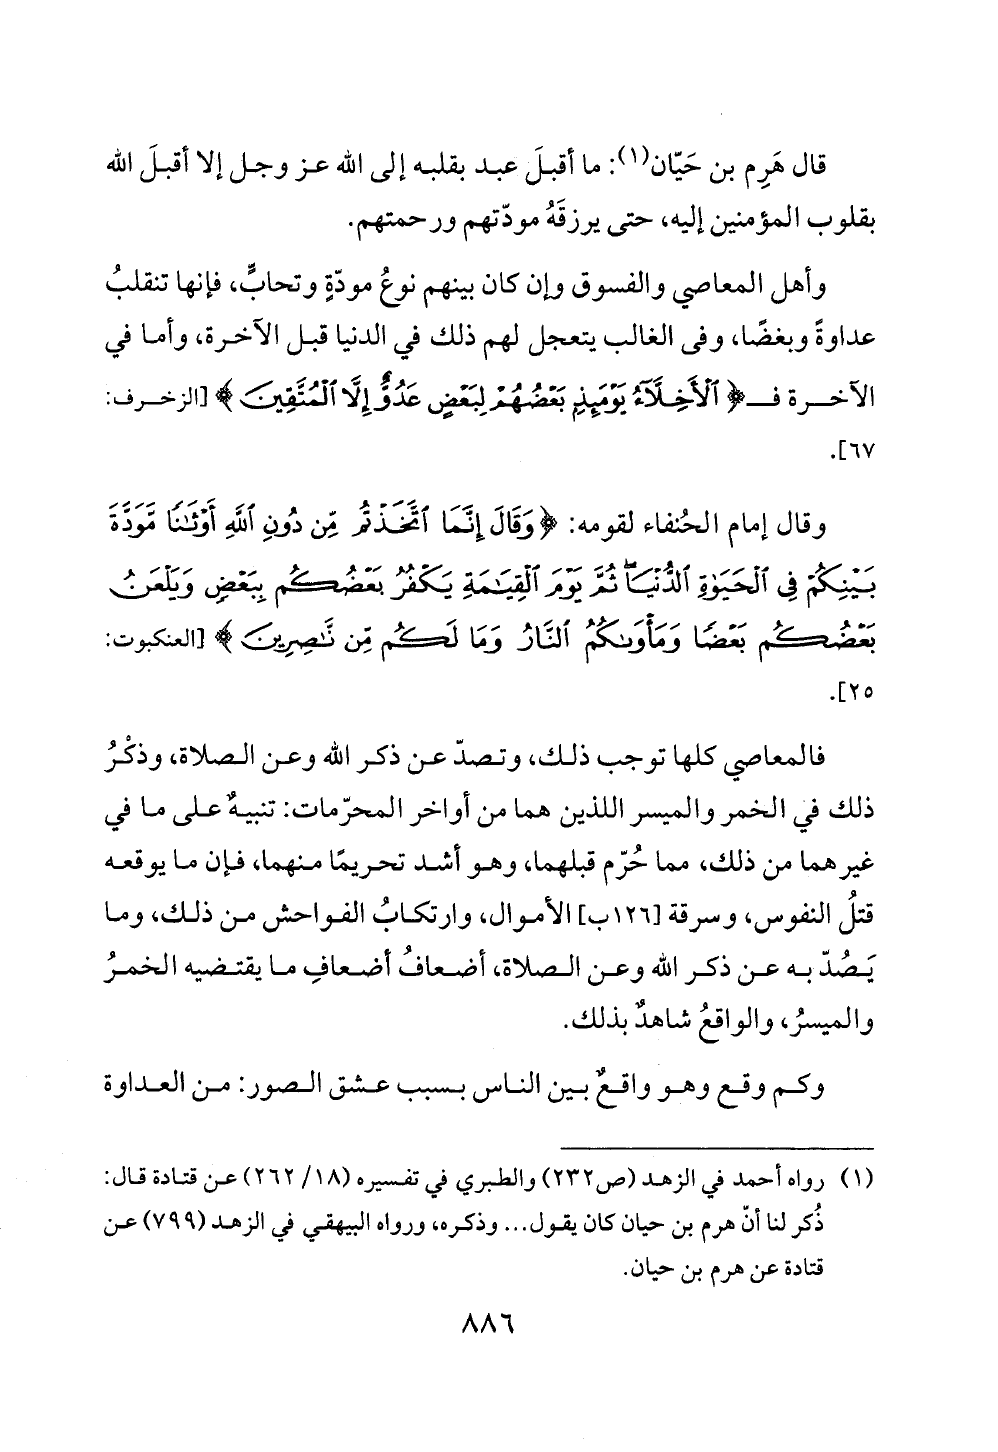 قال هَرِم بن حَيّان(١): ما أقبلَ عبد بقلبه إلى الله عز وجل إلا أقبلَ الله
بقلوب المؤمنين إليه، حتى يرزقَهُ مودّتهم ورحمتهم.
وأهل المعاصي والفسوق وإن كان بينهم نوعُ مودّةٍ وتحابٍّ، فإنها تنقلبُ
عداوةً وبغضًا، وفى الغالب يتعجل لهم ذلك في الدنيا قبل الآخرة، وأما في
الآخرة فـ﴿ٱلْأَخِلَّآءُ يَوْمَئِذٍۭ بَعْضُهُمْ لِبَعْضٍ عَدُوٌّ إِلَّا ٱلْمُتَّقِينَ﴾ [الزخرف:
٦٧].
وقال إمام الحُنفاء لقومه: ﴿وَقَالَ إِنَّمَا ٱتَّخَذْتُم مِّن دُونِ ٱللَّهِ أَوْثَٰنًا مَّوَدَّةَ
بَيْنِكُمْ فِى ٱلْحَيَوٰةِ ٱلدُّنْيَا ۖ ثُمَّ يَوْمَ ٱلْقِيَٰمَةِ يَكْفُرُ بَعْضُكُم بِبَعْضٍ وَيَلْعَنُ
بَعْضُكُم بَعْضًا وَمَأْوَىٰكُمُ ٱلنَّارُ وَمَا لَكُم مِّن نَّٰصِرِينَ﴾ [العنكبوت:
٢٥].
فالمعاصي كلها توجب ذلك، وتصدّ عن ذكر الله وعن الصلاة، وذكْرُ
ذلك في الخمر والميسر اللذين هما من أواخر المحرّمات: تنبيهٌ على ما في
غيرهما من ذلك، مما حُرّم قبلهما، وهو أشد تحريمًا منهما، فإن ما يوقعه
قتلُ النفوس، وسرقة [١٢٦ب] الأموال، وارتكابُ الفواحش من ذلك، وما
يَصُدّ به عن ذكر الله وعن الصلاة، أضعافُ أضعافِ ما يقتضيه الخمرُ
والميسرُ، والواقعُ شاهدٌ بذلك.
وكم وقع وهو واقعٌ بين الناس بسبب عشق الصور: من العداوة
(١) رواه أحمد في الزهد (ص٢٣٢) والطبري في تفسيره (١٨/ ٢٦٢) عن قتادة قال:
ذُكر لنا أنّ هرم بن حيان كان يقول... وذكره، ورواه البيهقي في الزهد (٧٩٩) عن
قتادة عن هرم بن حيان.
٨٨٦